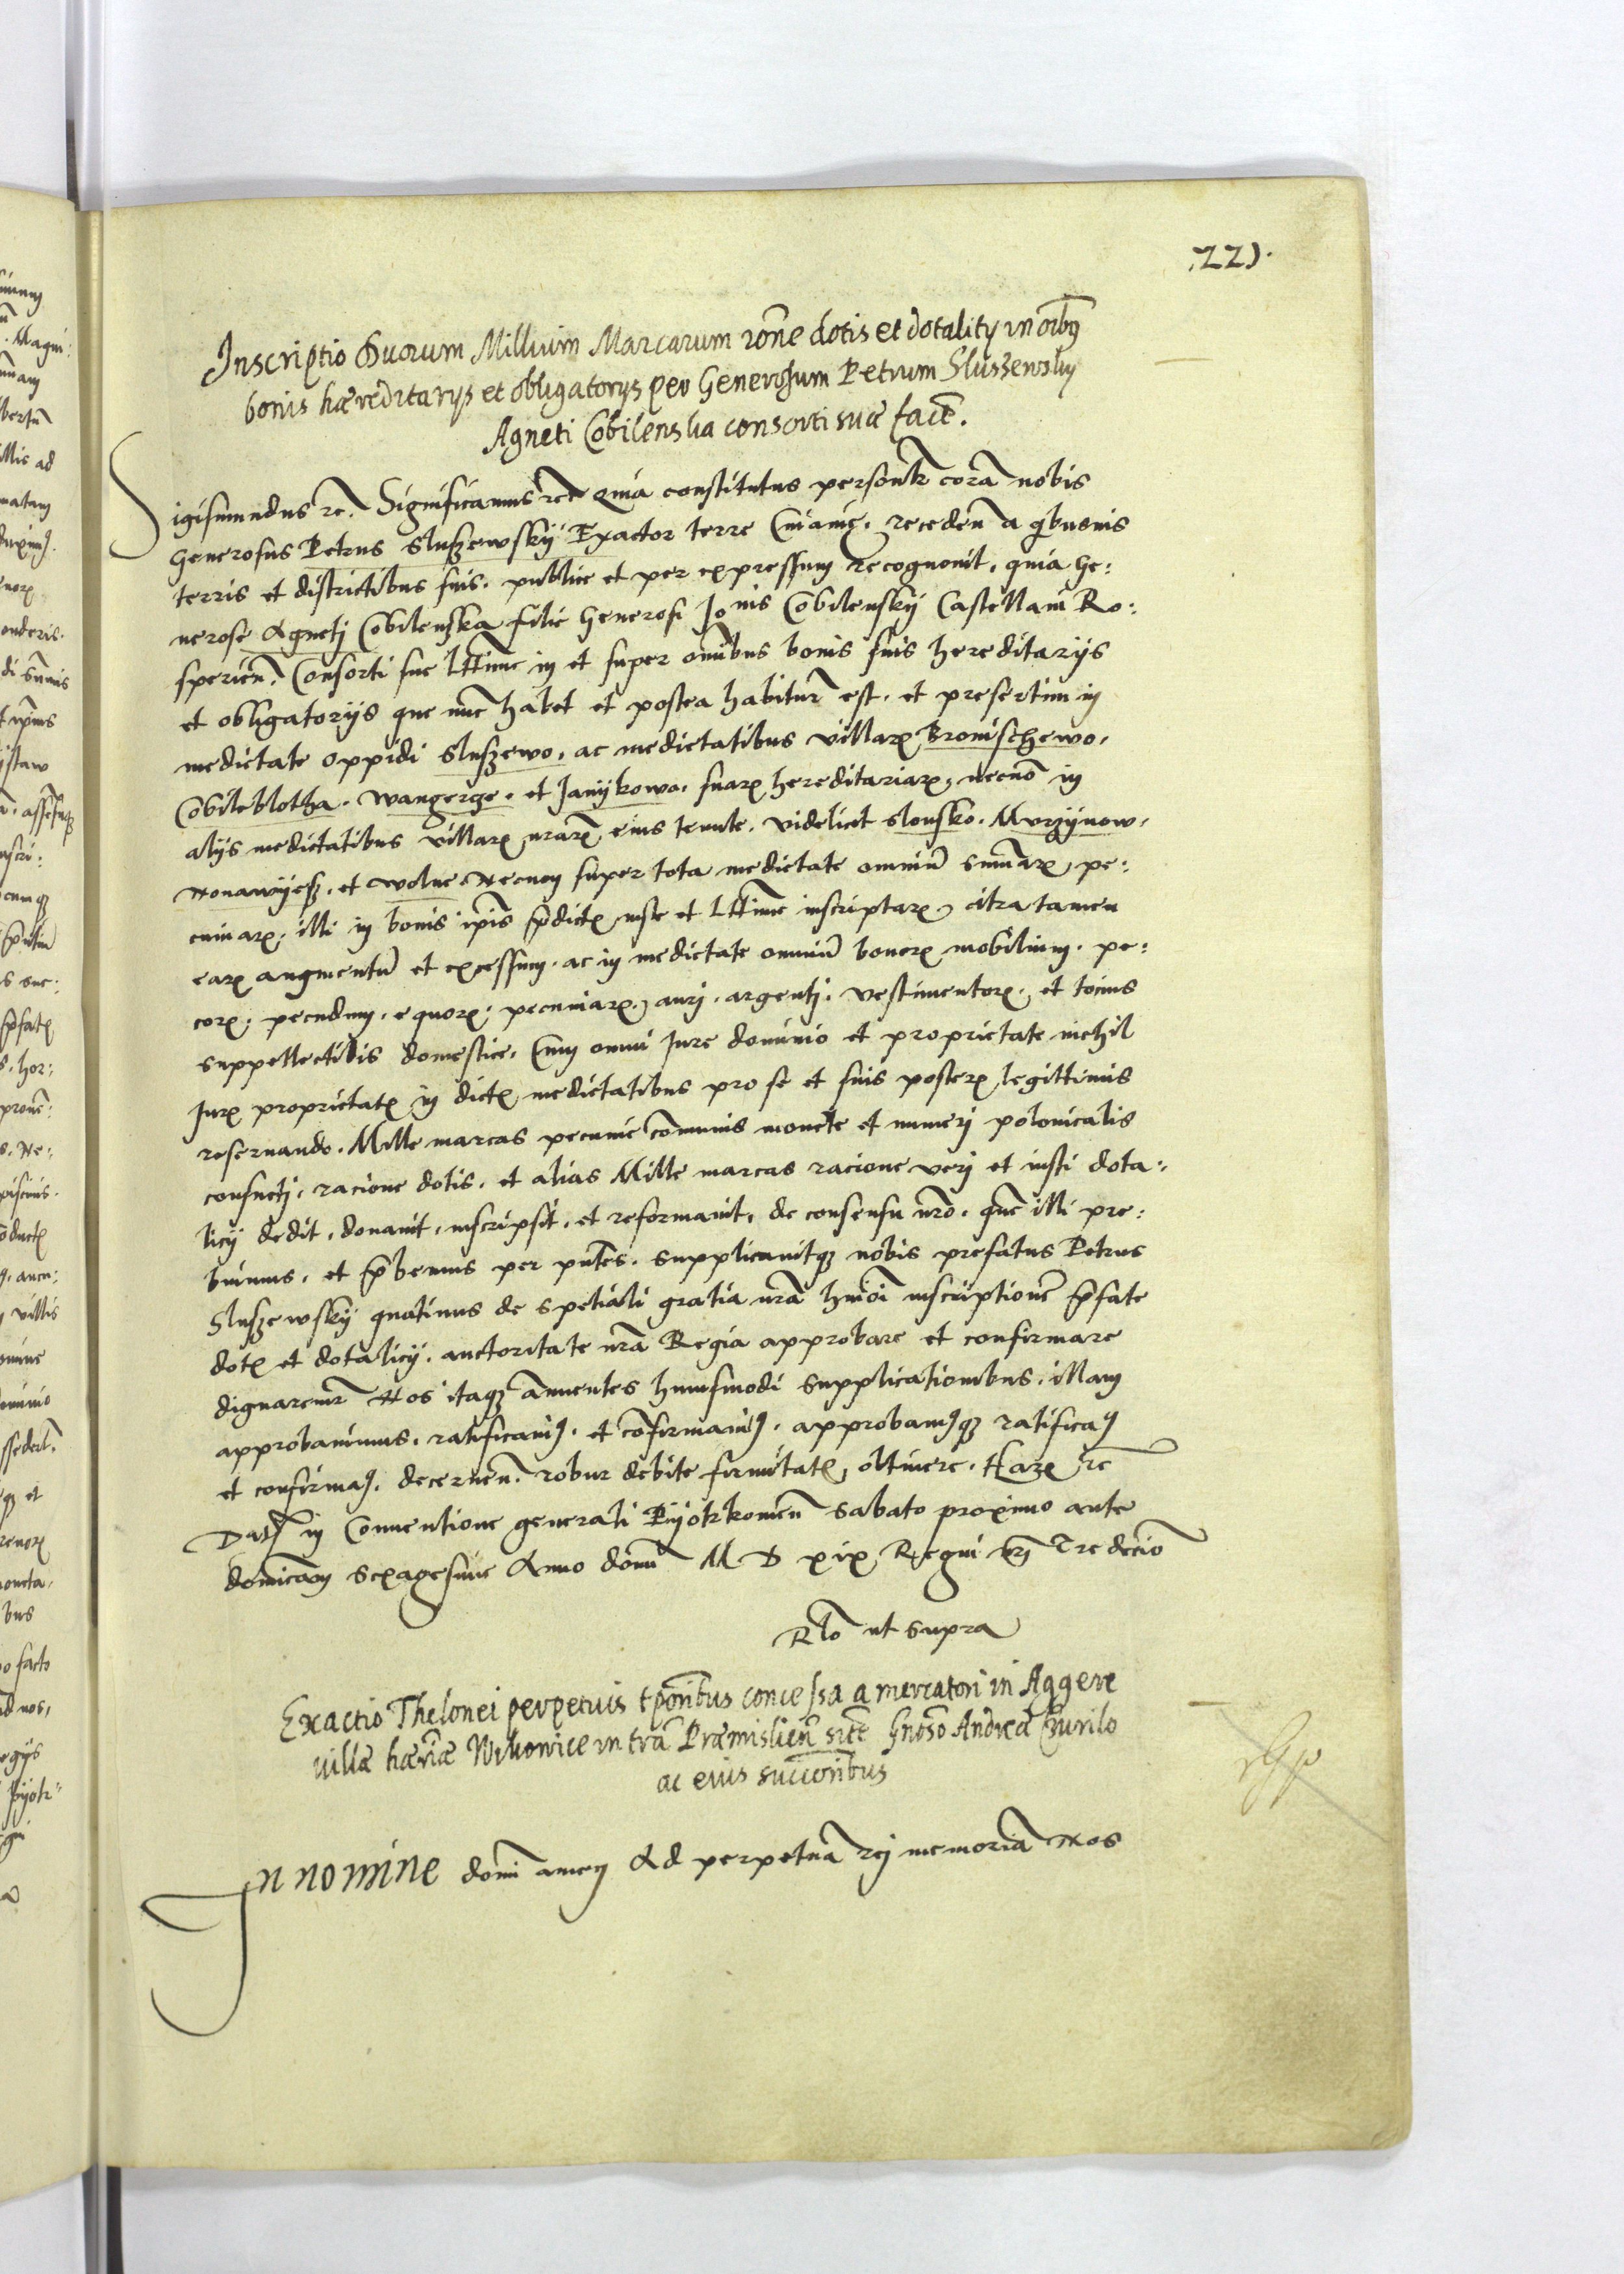 221.
Inscriptio Duorum Millium Marcarum rõne dotis et dotalitij in oĩbq
bonis hæreditarijs et obligatorijs per Generosum Petrum Sluszewsky
Agneti Cobilenska consorti suæ facẽ.
Sigismundus rc. Significamus rc Quia constitutus personlr corã nobis
Generosus Petrus Sluszewskÿ Exactor terre Cuiauie. receden̄ a qbusuis
terris et districtibus suis. publice et per expressum recognouit. quia Ge:
nerose Agnetj Cobilenska filie Generosi Jo nis Cobilenskÿ Castellani Ro:
sperien̄. Consorti sue lttime in et super om̄ibus bonis suis hereditarÿs
et obligatorÿs que nūc habet et postea habitur̄ est. et presertim in
medietate oppidi Sluszewo. ac medietatibus villarꝝ Bronischewo.
Cobileblotha. Wangerze. et Janÿkowo. suarꝝ hereditariarꝝ, necnō in
alÿs medietatibus villarꝝ nrarꝝ eius tenute. videlicet Slonsko. Murzÿnow.
Nowawÿesz. et Wolue. Necnon super tota medietate omniū sum̄arꝝ, pe:
cuniarꝝ, illi in bonis ip̄is p̄dictꝭ iuste et lttime inscriptarꝝ, citra tamen
earꝝ augmentū et excessum. ac in medietate omniū bonorꝝ mobilium. pe:
corꝝ, pecudum, equorꝝ, pecuniarꝝ, aurj. argentj. vestimentorꝝ. et tocius
suppellectilis domestice. Cum omni Jure dominio et proprietate nichil
Jurꝭ proprietatꝭ in dictꝭ medietatibus pro se et suis posterꝭ legittimis
reseruando. Mille marcas pecunie cōmunis monete et numerj polonicalis
consuetj. racione dotis. et alias Mille marcas racione verj et iusti dota:
licÿ dedit, donauit, inscripsit. et reformauit, de consensu nrō. quē illi pre:
buimus. et p̄bemus per pntes. Supplicauitqz nobis prefatus Petrus
Sluszewskÿ quatinus de speciali gratia nrā hmōi inscriptionē p̄fate
dotꝭ et dotalicÿ. auctoritate nrā Regia approbare et confirmare
dignaremr Nos itaqz annuentes huiusmodi supplicationibus. illam
approbauimus. ratificauimꝯ. et cōfirmauimꝯ. approbamꝯqz ratificamꝯ
et confirmamꝯ. decernen̄. robur debite firmitatꝭ, obtinere. Harꝝ rc
Datꝭ in Conuentione generali Pÿotrkouien̄ Sabato proximo ante
dominicam Sexagesime Anno domi M D xix Regni nrj Tredecimo
Rlō ut supra
Exactio Thelonei perpetuis tp̄oribus concessa a mercatori in Aggere
villæ hær̄iæ Wikowice in trã Præmislien̄ sitẽ Gnõso Andreæ Czurilo
ac eius succoribus
In nomine domī amen Ad perpetuā rej memoriā Nos